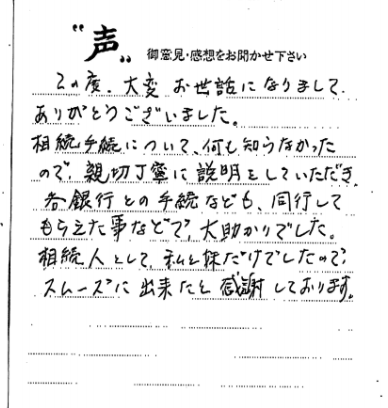 "声" 御意見・感想をお聞かせ下さい
この度、大変お世話になりまして、
ありがとうございました。
相続手続について、何も知らなかった
ので、親切丁寧に説明をしていただき、
各銀行との手続なども、同行して
もらえた事などで、大助かりでした。
相続人として、私と妹だけでしたので、
スムーズに出来たと感謝しております。